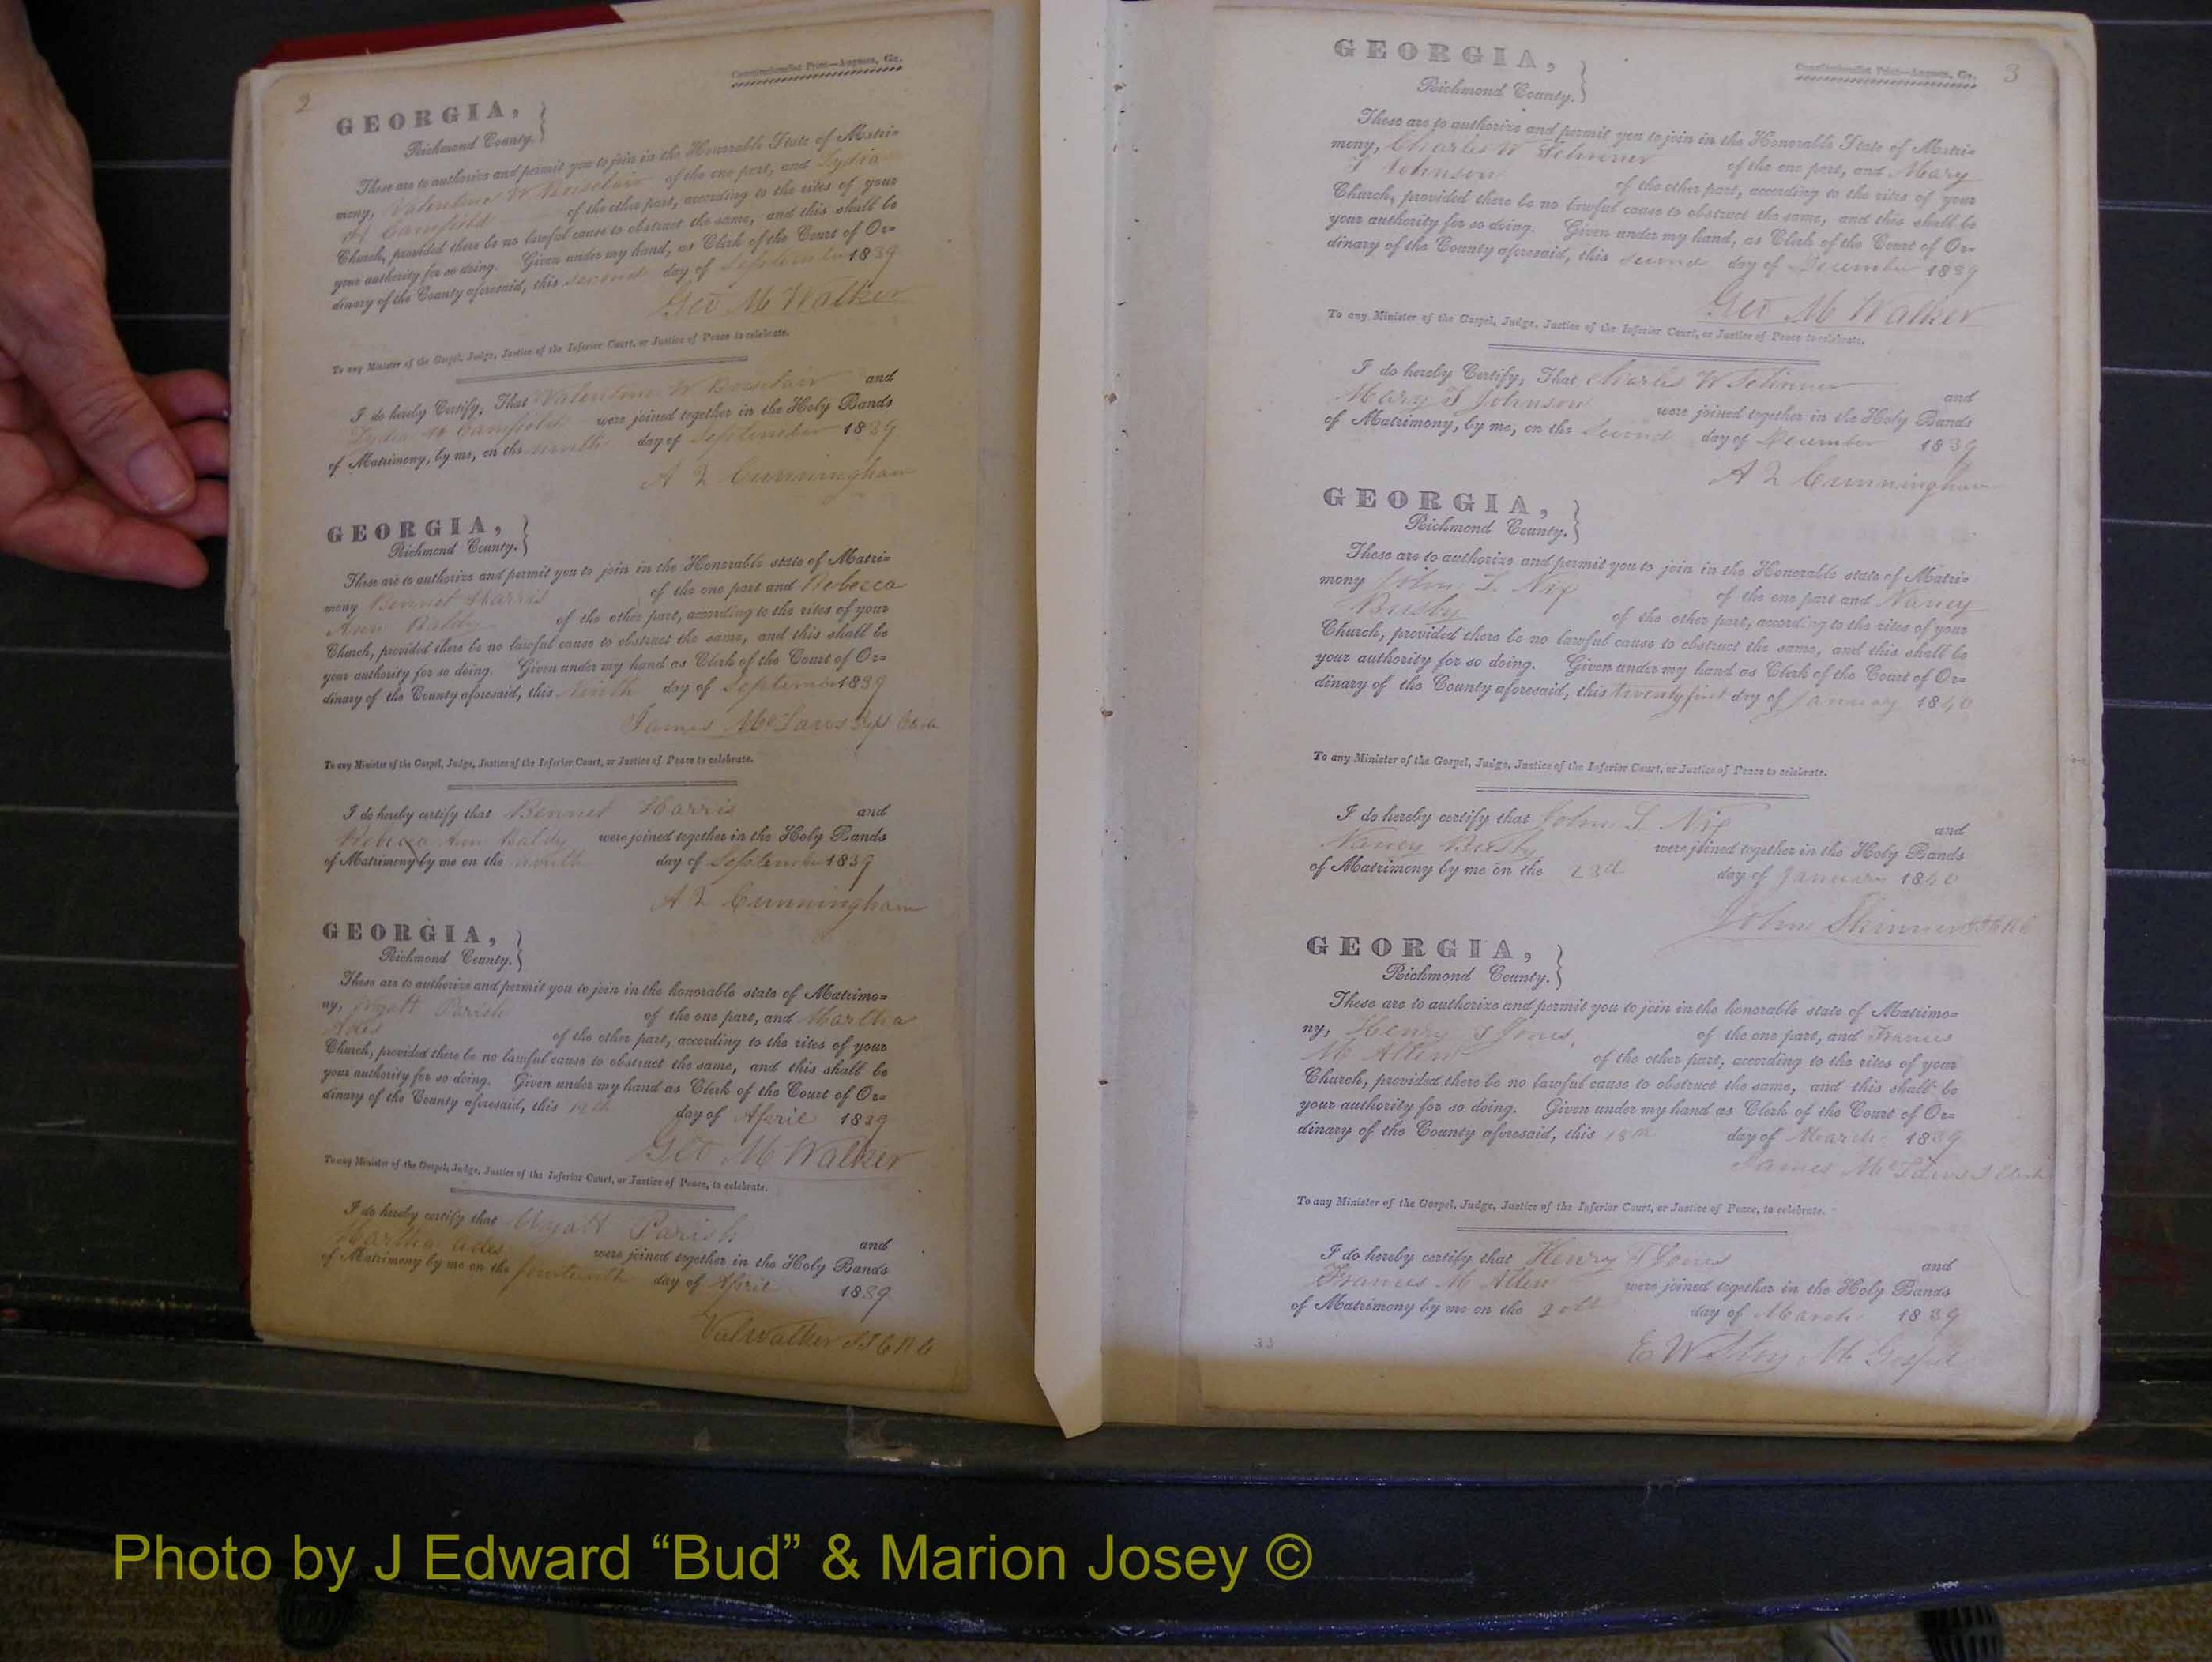 2
Constitutionalist Print—Augusta, Ga.
GEORGIA,
Richmond County.
These are to authorize and permit you to join in the Honorable State of Matri-
mony, Valentine W of the one part, and Lydia
H Camfield of the other part, according to the rites of your
Church, provided there be no lawful cause to obstruct the same, and this shall be
your authority for so doing. Given under my hand, as Clerk of the Court of Or-
dinary of the County aforesaid, this second day of September 1839
Geo M Walker
To any Minister of the Gospel, Judge, Justice of the Inferior Court, or Justice of Peace to celebrate.
I do hereby Certify, That Valentine W and
Lydia H Camfield were joined together in the Holy Bands
of Matrimony, by me, on the ninth day of September 1839
Cunningham
GEORGIA,
Richmond County.
These are to authorize and permit you to join in the Honorable state of Matri-
mony Bennet Harris of the one part and Rebecca
Ann Baldy of the other part, according to the rites of your
Church, provided there be no lawful cause to obstruct the same, and this shall be
your authority for so doing. Given under my hand as Clerk of the Court of Or-
dinary of the County aforesaid, this Ninth day of September 1839
James McLaws Dept Clerk
To any Minister of the Gospel, Judge, Justice of the Inferior Court, or Justice of Peace to celebrate.
I do hereby certify that Bennet Harris and
Rebecca Ann Baldy were joined together in the Holy Bands
of Matrimony by me on the day of September 1839
Cunningham
GEORGIA,
Richmond County.
These are to authorize and permit you to join in the honorable state of Matrimo-
ny, Wyatt Parish of the one part, and Martha
Ades of the other part, according to the rites of your
Church, provided there be no lawful cause to obstruct the same, and this shall be
your authority for so doing. Given under my hand as Clerk of the Court of Or-
dinary of the County aforesaid, this day of April 1839
Geo M Walker
To any Minister of the Gospel, Judge, Justice of the Inferior Court, or Justice of Peace, to celebrate.
I do hereby certify that Wyatt Parish and
Martha Ades were joined together in the Holy Bands
of Matrimony by me on the fourteenth day of April 1839
Val Walker
3
Constitutionalist Print—Augusta, Ga.
GEORGIA,
Richmond County.
These are to authorize and permit you to join in the Honorable State of Matri-
mony, Charles W of the one part, and Mary
Johnson of the other part, according to the rites of your
Church, provided there be no lawful cause to obstruct the same, and this shall be
your authority for so doing. Given under my hand, as Clerk of the Court of Or-
dinary of the County aforesaid, this second day of December 1839
Geo M Walker
To any Minister of the Gospel, Judge, Justice of the Inferior Court, or Justice of Peace to celebrate.
I do hereby Certify, That Charles W and
Mary Johnson were joined together in the Holy Bands
of Matrimony, by me, on the second day of December 1839
Cunningham
GEORGIA,
Richmond County.
These are to authorize and permit you to join in the Honorable state of Matri-
mony John L Nix of the one part and Nancy
Busby of the other part, according to the rites of your
Church, provided there be no lawful cause to obstruct the same, and this shall be
your authority for so doing. Given under my hand as Clerk of the Court of Or-
dinary of the County aforesaid, this twenty first day of January 1840
To any Minister of the Gospel, Judge, Justice of the Inferior Court, or Justice of Peace to celebrate.
I do hereby certify that John L Nix and
Nancy Busby were joined together in the Holy Bands
of Matrimony by me on the 23d day of January 1840
John Skinner
GEORGIA,
Richmond County.
These are to authorize and permit you to join in the honorable state of Matrimo-
ny, Henry T Jones, of the one part, and Frances
M Allen of the other part, according to the rites of your
Church, provided there be no lawful cause to obstruct the same, and this shall be
your authority for so doing. Given under my hand as Clerk of the Court of Or-
dinary of the County aforesaid, this 18th day of March 1839
James McLaws Clerk
To any Minister of the Gospel, Judge, Justice of the Inferior Court, or Justice of Peace, to celebrate.
I do hereby certify that Henry T Jones and
Frances M Allen were joined together in the Holy Bands
of Matrimony by me on the 20th day of March 1839
33
Photo by J Edward “Bud” & Marion Josey ©